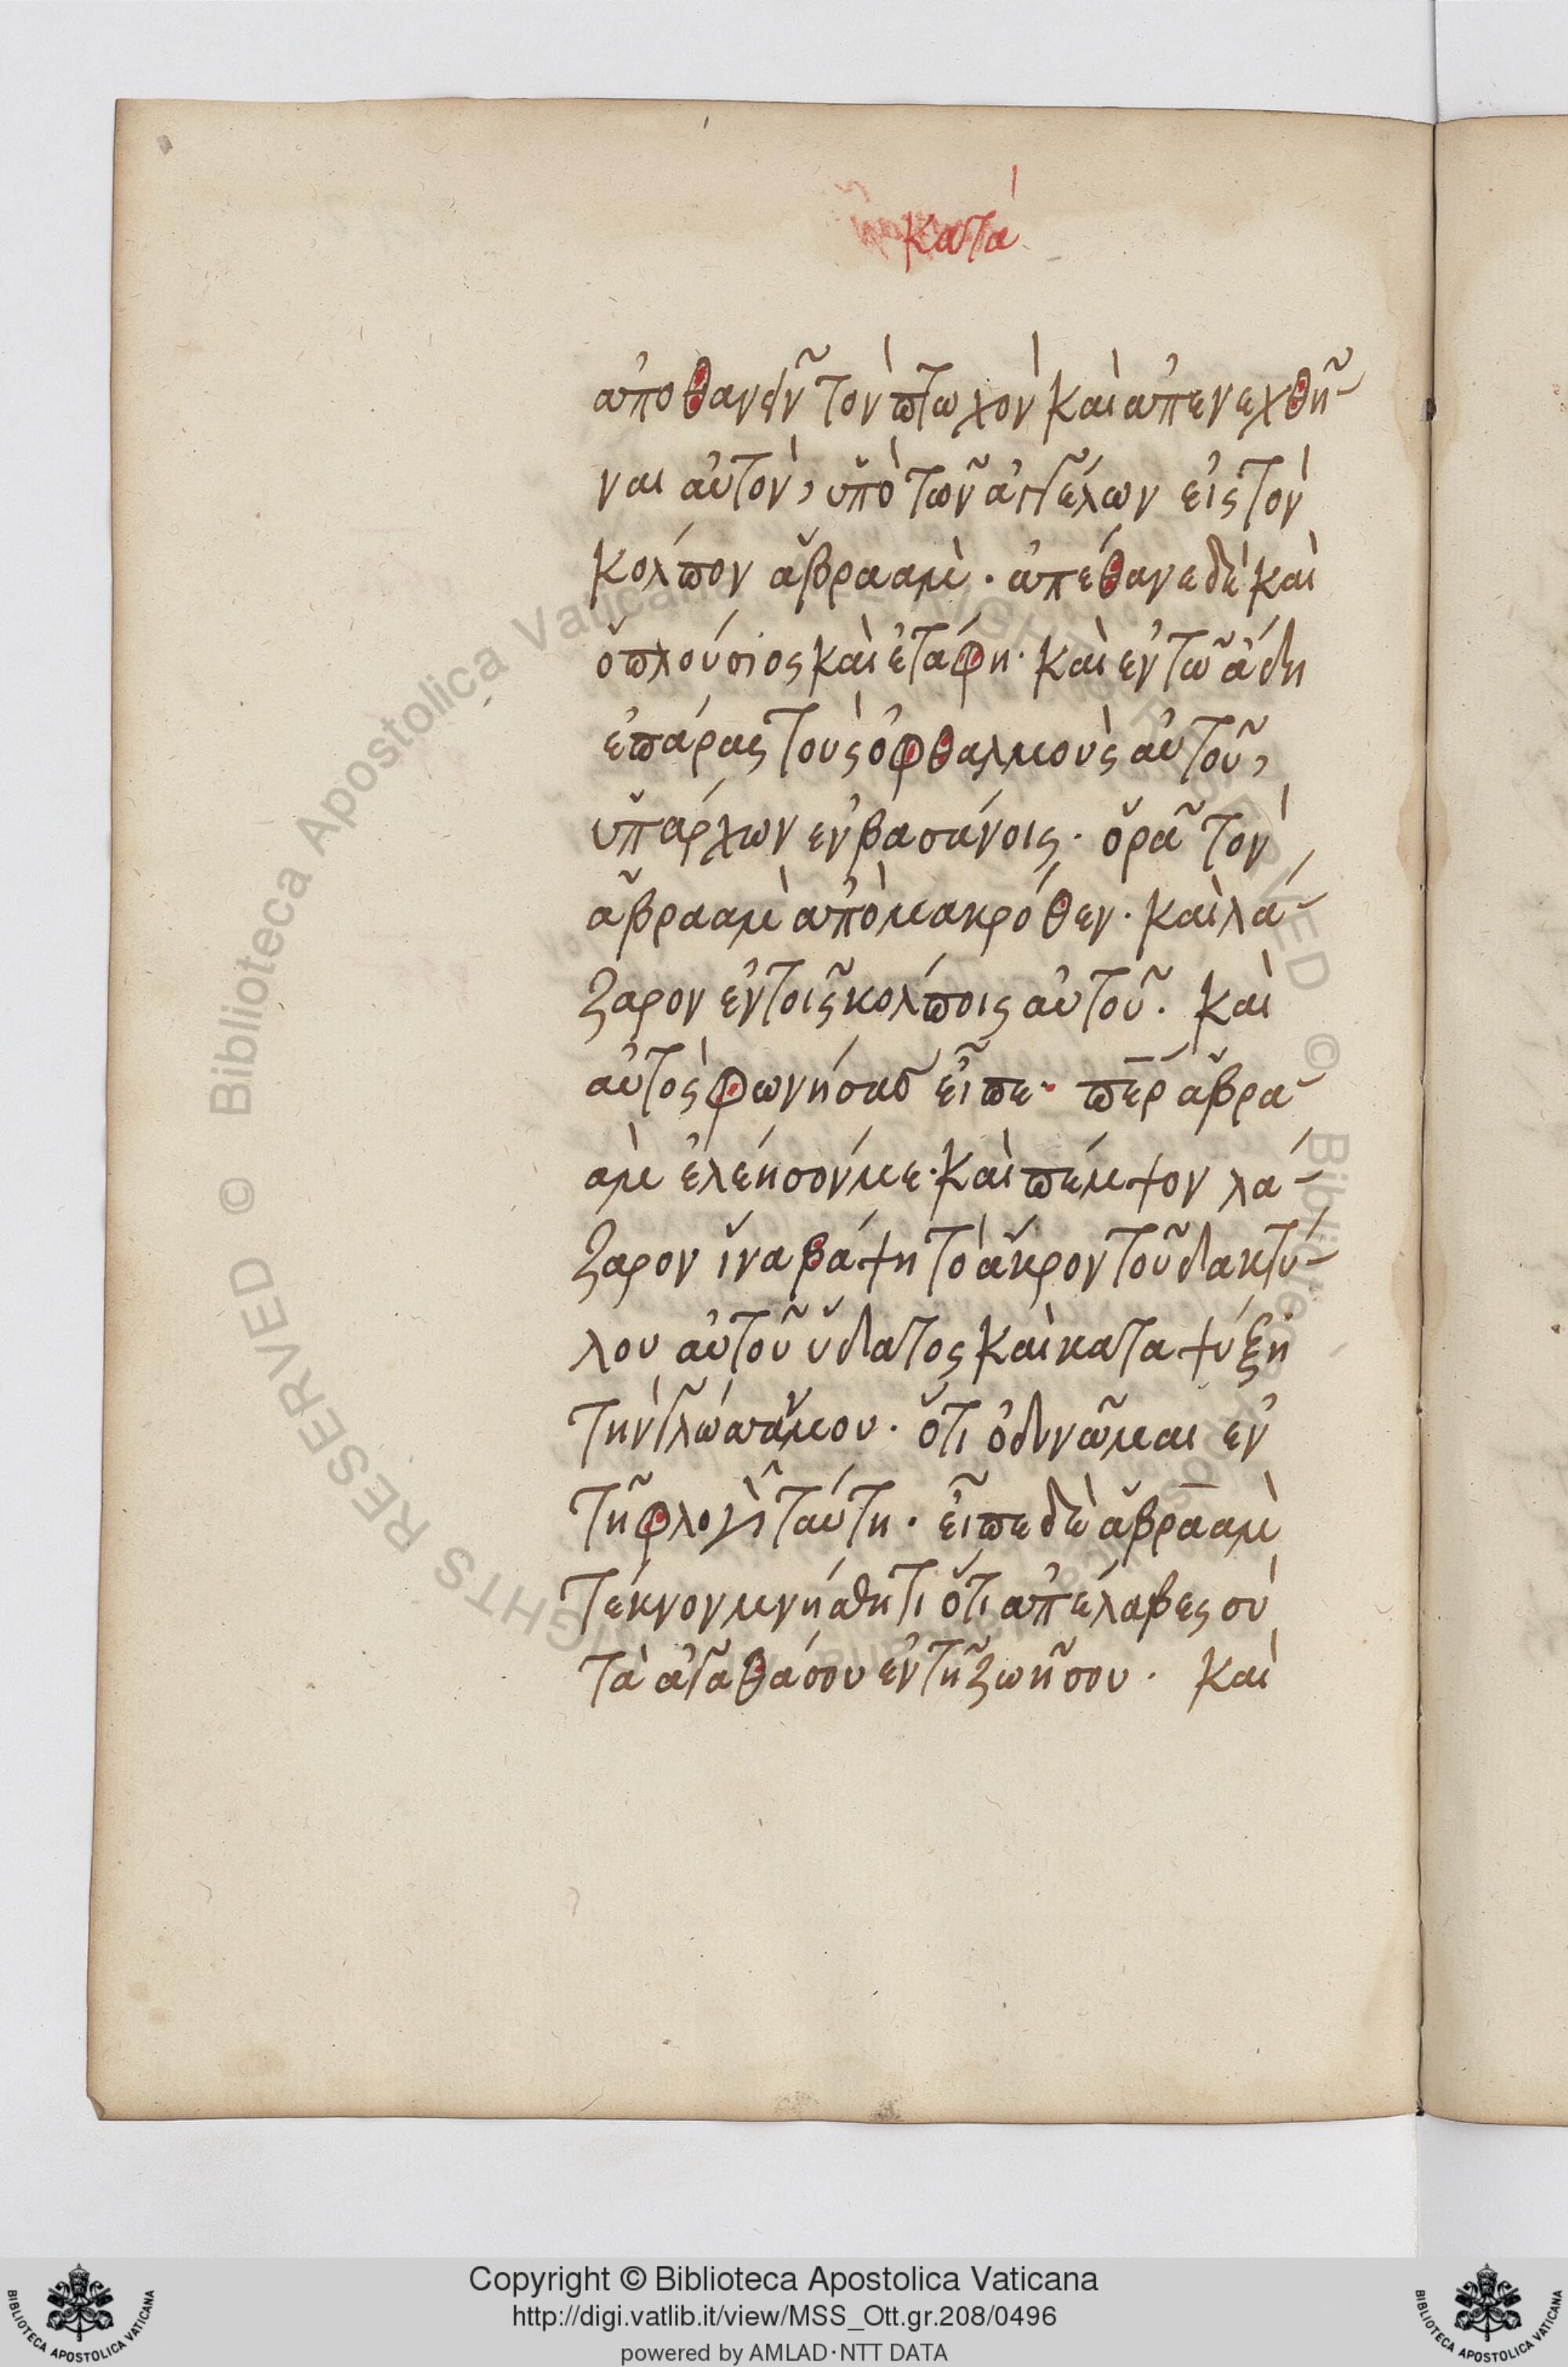 κατὰ
ἀποθανεῖν τὸν πτωχὸν καὶ ἀπενεχθῆ-
ναι αὐτὸν, ὑπὸ τῶν ἀγγέλων εἰς τὸν
κόλπον ἅβρααμ. ἀπέθανε δὲ καὶ
ὁ πλούσιος καὶ ἐτάφη. καὶ ἐν τῶ ἅδη
ἐπάρας τοὺς ὀφθαλμοὺς αὐτοῦ,
ὑπάρχων ἐν βασάνοις. ὁρᾶ τὸν
ἅβρααμ ἀπὸ μακρόθεν. καὶ λά-
ζαρον ἐν τοῖς κόλποις αὐτοῦ. καὶ
αὐτὸς φωνήσας εἶπε. πε̅ρ ἅβρα-
αμ ἐλέησόν με. καὶ πέμψον λά-
ζαρον ἵνα βάψη τὸ ἄκρον τοῦ δακτύ-
λου αὐτοῦ ὕδατος καὶ καταψύξη
τὴν γλώσσάν μου. ὅτι ὀδυνῶμαι ἐν
τῆ φλογὶ ταύτη. εἶπε δὲ ἅβρααμ
τέκνον μνήσθητι ὅτι ἀπέλαβες σὺ
τὰ ἀγαθά σου ἐν τῆ ζωῆ σου. καὶ
Copyright © Biblioteca Apostolica Vaticana
http://digi.vatlib.it/view/MSS_Ott.gr.208/0496
powered by AMLAD·NTT DATA
BIBLIOTECA APOSTOLICA VATICANA
BIBLIOTECA APOSTOLICA VATICANA